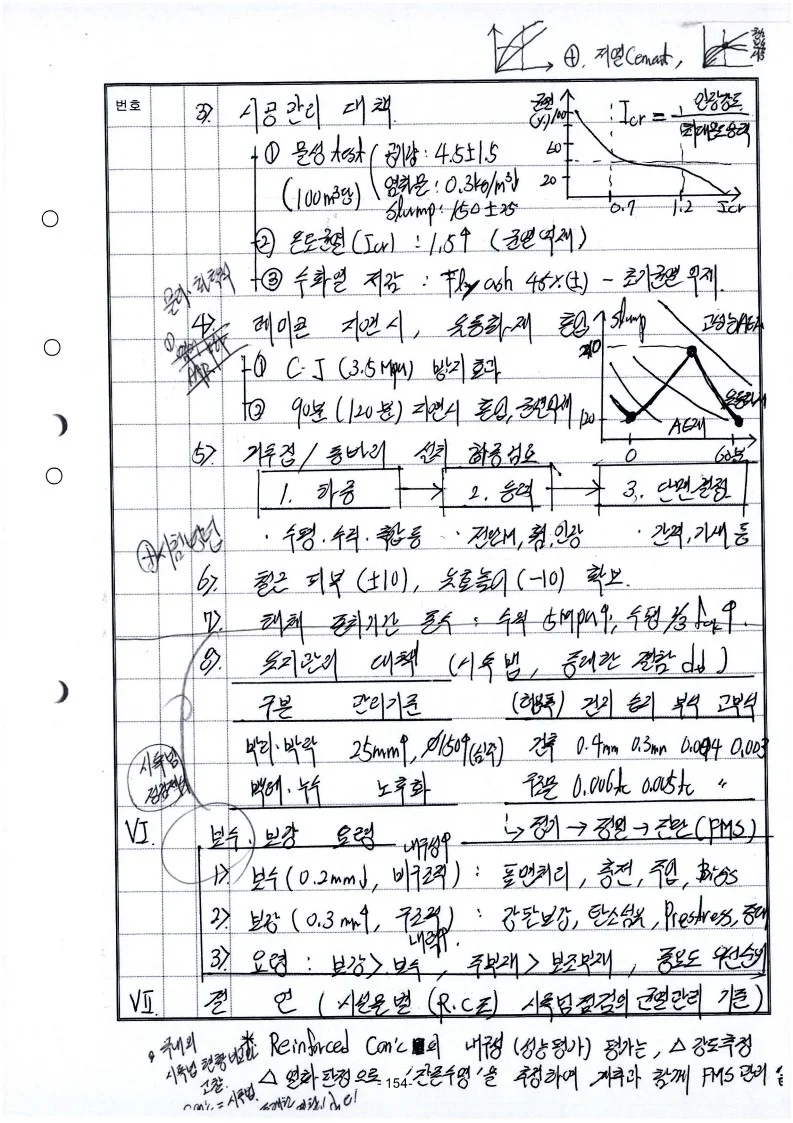 ⊕, 지연Cement,
번호
3> 시공관리 대책
균열(%) 100
60
20
0.7 1.2 Icr
Icr = 인장강도 / 최대온도응력
① 물성 test (100m³당)
공기량 : 4.5±1.5
염화물 : 0.3kg/m³↓
Slump : 150±25
② 온도균열(Icr) : 1.5↑ (균열억제)
③ 수화열 저감 : Fly ash 45%(±) - 초기균열 억제.
4> 레미콘 지연시, 유동화제 투입
Slump 고성능AEA
210
120
유동화제
AE제
0 60분
① C·J (3.5Mpa) 방지효과
② 90분 (120분) 지연시 투입, 균열억제
5> 거푸집/동바리 설치 하중검토
1. 하중 → 2. 응력 → 3. 단면결정
· 수평·수직·측압 등 · 전단, 휨, 인장 · 간격, 가새 등
⊕시험방법
6> 철근 피복 (±10), 유효높이 (-10) 확보.
7> 해체 존치기간 준수 : 수직 5Mpa↑, 수평 ⅔ fck↑.
8> 유지관리 대책 (시특법, 중대한 결함 等)
구분 관리기준 (허용폭) 건기 습기 부식 고부식
박리·박락 25mm↑, ∅150↑(심주) 건축 0.4mm 0.3mm 0.004 0.003
백태·누수 노후화 토목 0.006tc 0.005tc 〃
시특법
→ 정기 → 정밀 → 진단 (FMS)
Ⅵ. 보수·보강 요령
내구성↑
1> 보수 (0.2mm↓, 비구조적) : 표면처리, 충전, 주입, BIGS
2> 보강 (0.3mm↑, 구조적) : 강판보강, 탄소섬유, Prestress, 증대
내력↑.
3> 요령 : 보강 > 보수, 주부재 > 보조부재, 중요도 우선순위
Ⅶ. 결 언 (시설물별 (R.C조) 시특법점검의 균열관리 기준)
국내외
시특법 현황 비교
고찰.
※ Reinforced Con'c의 내구성 (성능평가) 평가는, △ 강도추정
△ 열화 판정으로 '잔존수명'을 추정하여 계측과 함께 FMS 관리
- 154 -